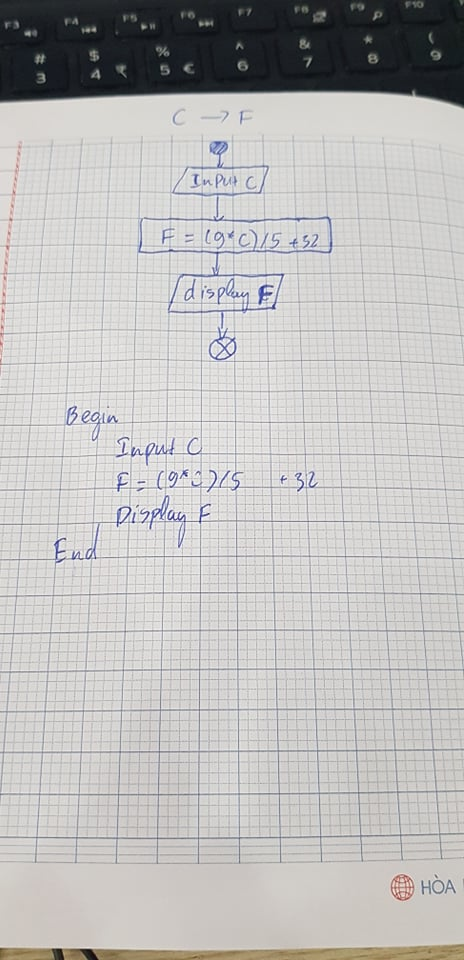 F3 F4 F5 F6 F7 F8 F9 F10
# $ % ^ & * (
3 4 ₹ 5 € 6 7 8 9
C → F
Input C
F = (9*C)/5 +32
display F
Begin
Input C
F = (9*C)/5 +32
Display F
End
HÒA